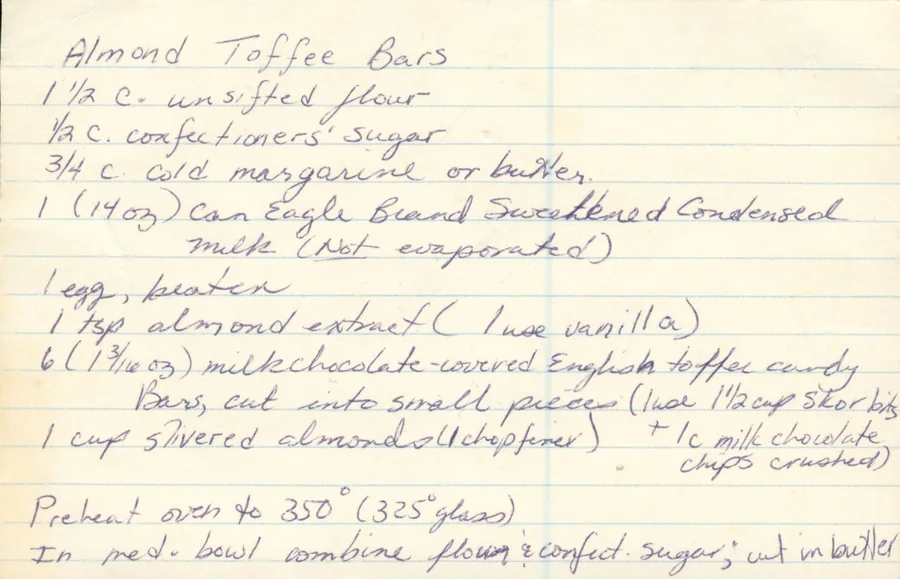 Almond Toffee Bars
1 1/2 c. unsifted flour
1/2 c. confectioners' sugar
3/4 c. cold margarine or butter.
1 (14 oz) can Eagle Brand Sweetened Condensed
milk (Not evaporated)
1 egg, beaten
1 tsp almond extract ( I use vanilla)
6 (1 3/16 oz) milk chocolate-covered English toffee candy
Bars, cut into small pieces (I use 1 1/2 cup Skor bits
1 cup slivered almonds (I chop finer) + 1c milk chocolate
chips crushed)
Preheat oven to 350° (325° glass)
In med. bowl combine flour & confect. sugar; cut in butter